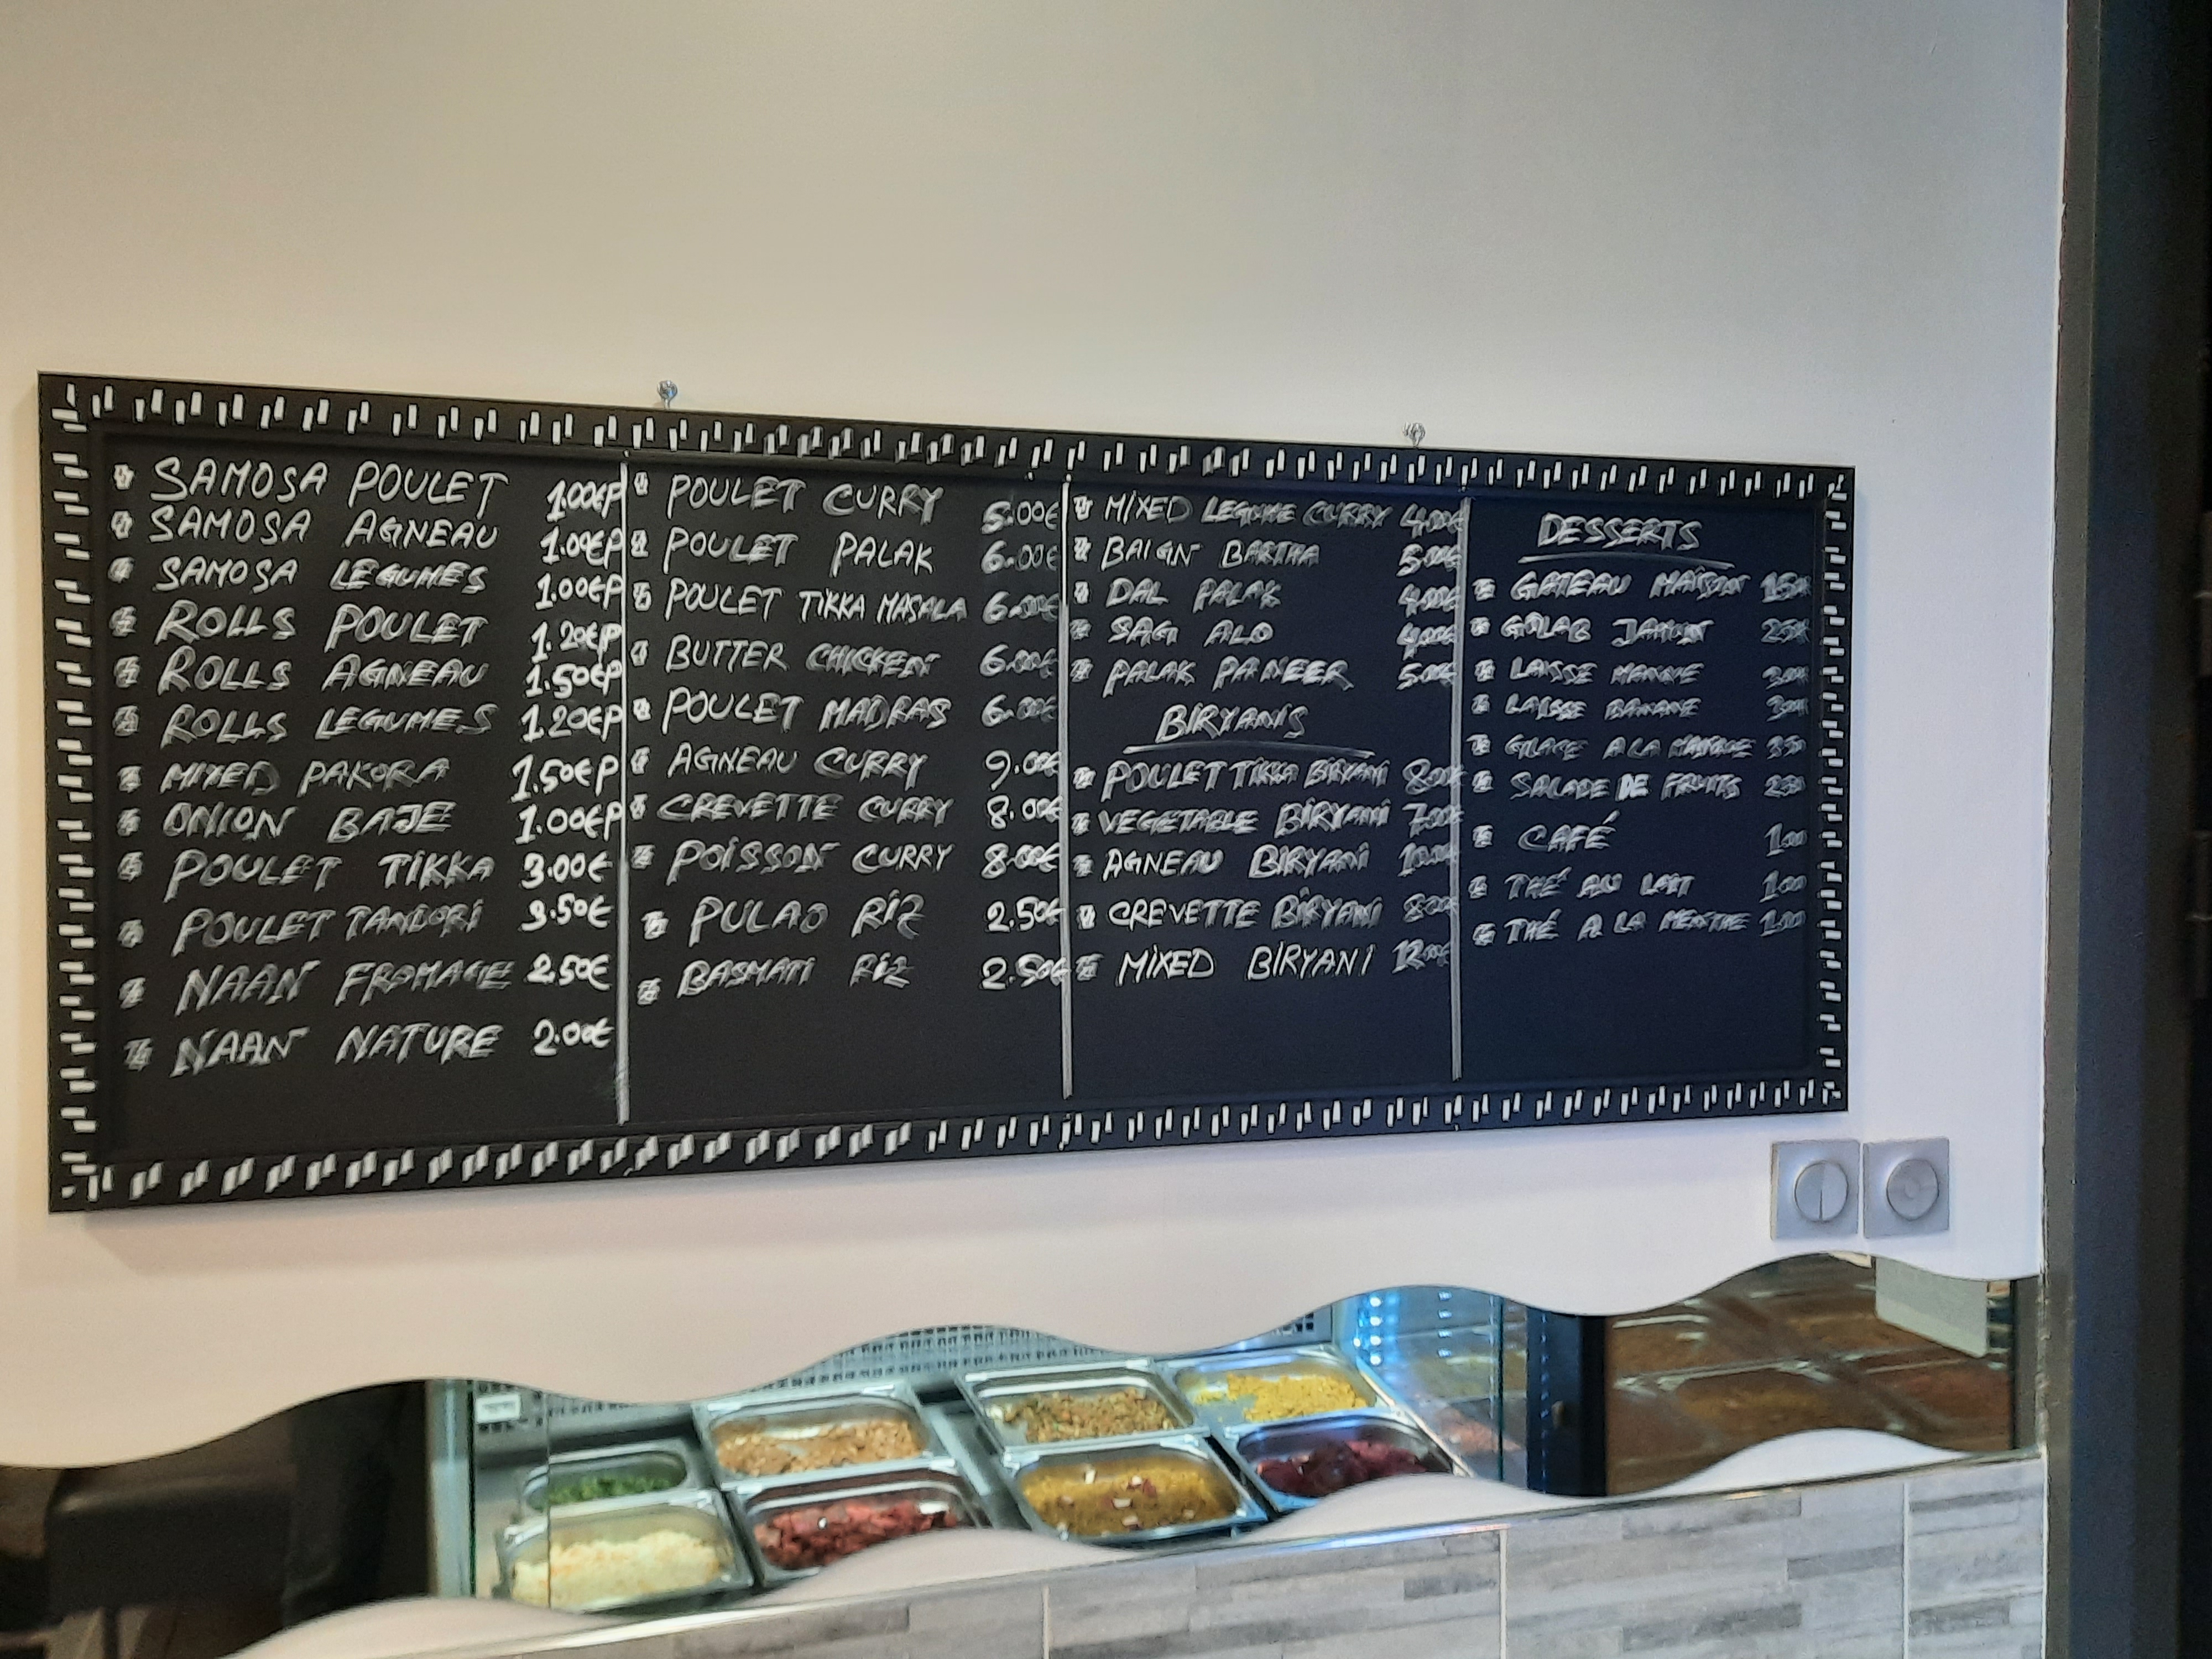 SAMOSA POULET 1.00€P
SAMOSA AGNEAU 1.00€P
SAMOSA LEGUMES 1.00€P
ROLLS POULET 1.20€P
ROLLS AGNEAU 1.50€P
ROLLS LEGUMES 1.20€P
MIXED PAKORA 1.50€P
ONION BAJE 1.00€P
POULET TIKKA 3.00€
POULET TANDORI 3.50€
NAAN FROMAGE 2.50€
NAAN NATURE 2.00€
POULET CURRY 5.00€
POULET PALAK 6.00€
POULET TIKKA MASALA 6.00€
BUTTER CHICKEN 6.00€
POULET MADRAS 6.00€
AGNEAU CURRY 9.00€
CREVETTE CURRY 8.00€
POISSON CURRY 8.00€
PULAO RIZ 2.50€
BASMATI RIZ 2.50€
MIXED LEGUME CURRY 4.00€
BAIGN BARTHA 5.00€
DAL PALAK 4.00€
SAG ALO 4.00€
PALAK PANEER 5.00€
BIRYANIS
POULET TIKKA BIRYANI 8.00€
VEGETABLE BIRYANI 7.00€
AGNEAU BIRYANI 10.00€
CREVETTE BIRYANI 8.00€
MIXED BIRYANI 12.00€
DESSERTS
GATEAU MAISON
GOLAB JAMUN
LAISSE MANGUE
LAISSE BANANE
GLACE A LA
SALADE DE FRUITS
CAFÉ 1.00
THÉ AU LAIT 1.00
THÉ A LA MENTHE 1.00